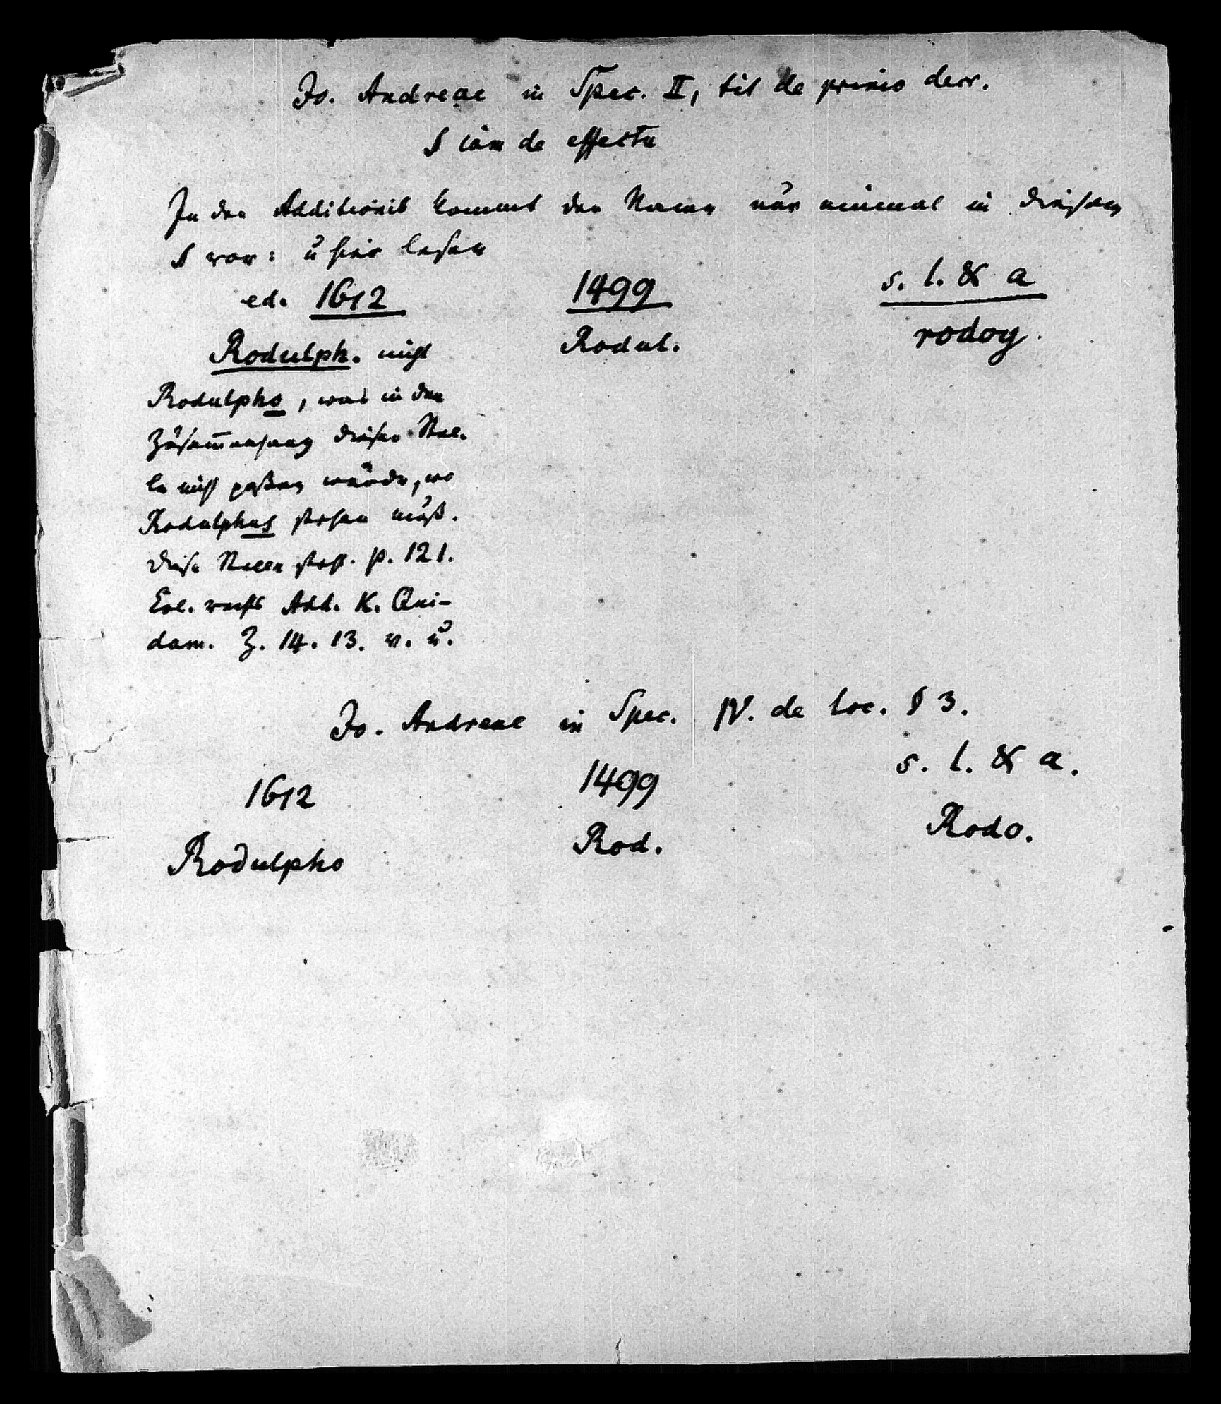 Jo. Andreae in Spec. II, tit de primo decr.
§ iam de effectu
In den Additionib kommt der Name nur einmal in diesem
§ vor: u hier lesen
ed. 1612 1499 s. l. & a
Rodulph. nicht Rodul. rodoy.
Rodulpho, was in den
Zusam̅enhang dieser Stel-
le nicht paßen würde, wo
Rodulphus stehen muß.
Diese Stelle steht p. 121.
Col. rechts Add. K. Qui-
dam. Z. 14. 13. v. u.
Jo. Andreae in Spec. IV. de loc. § 3.
1612 1499 s. l. & a.
Rodulpho Rod. Rodo.